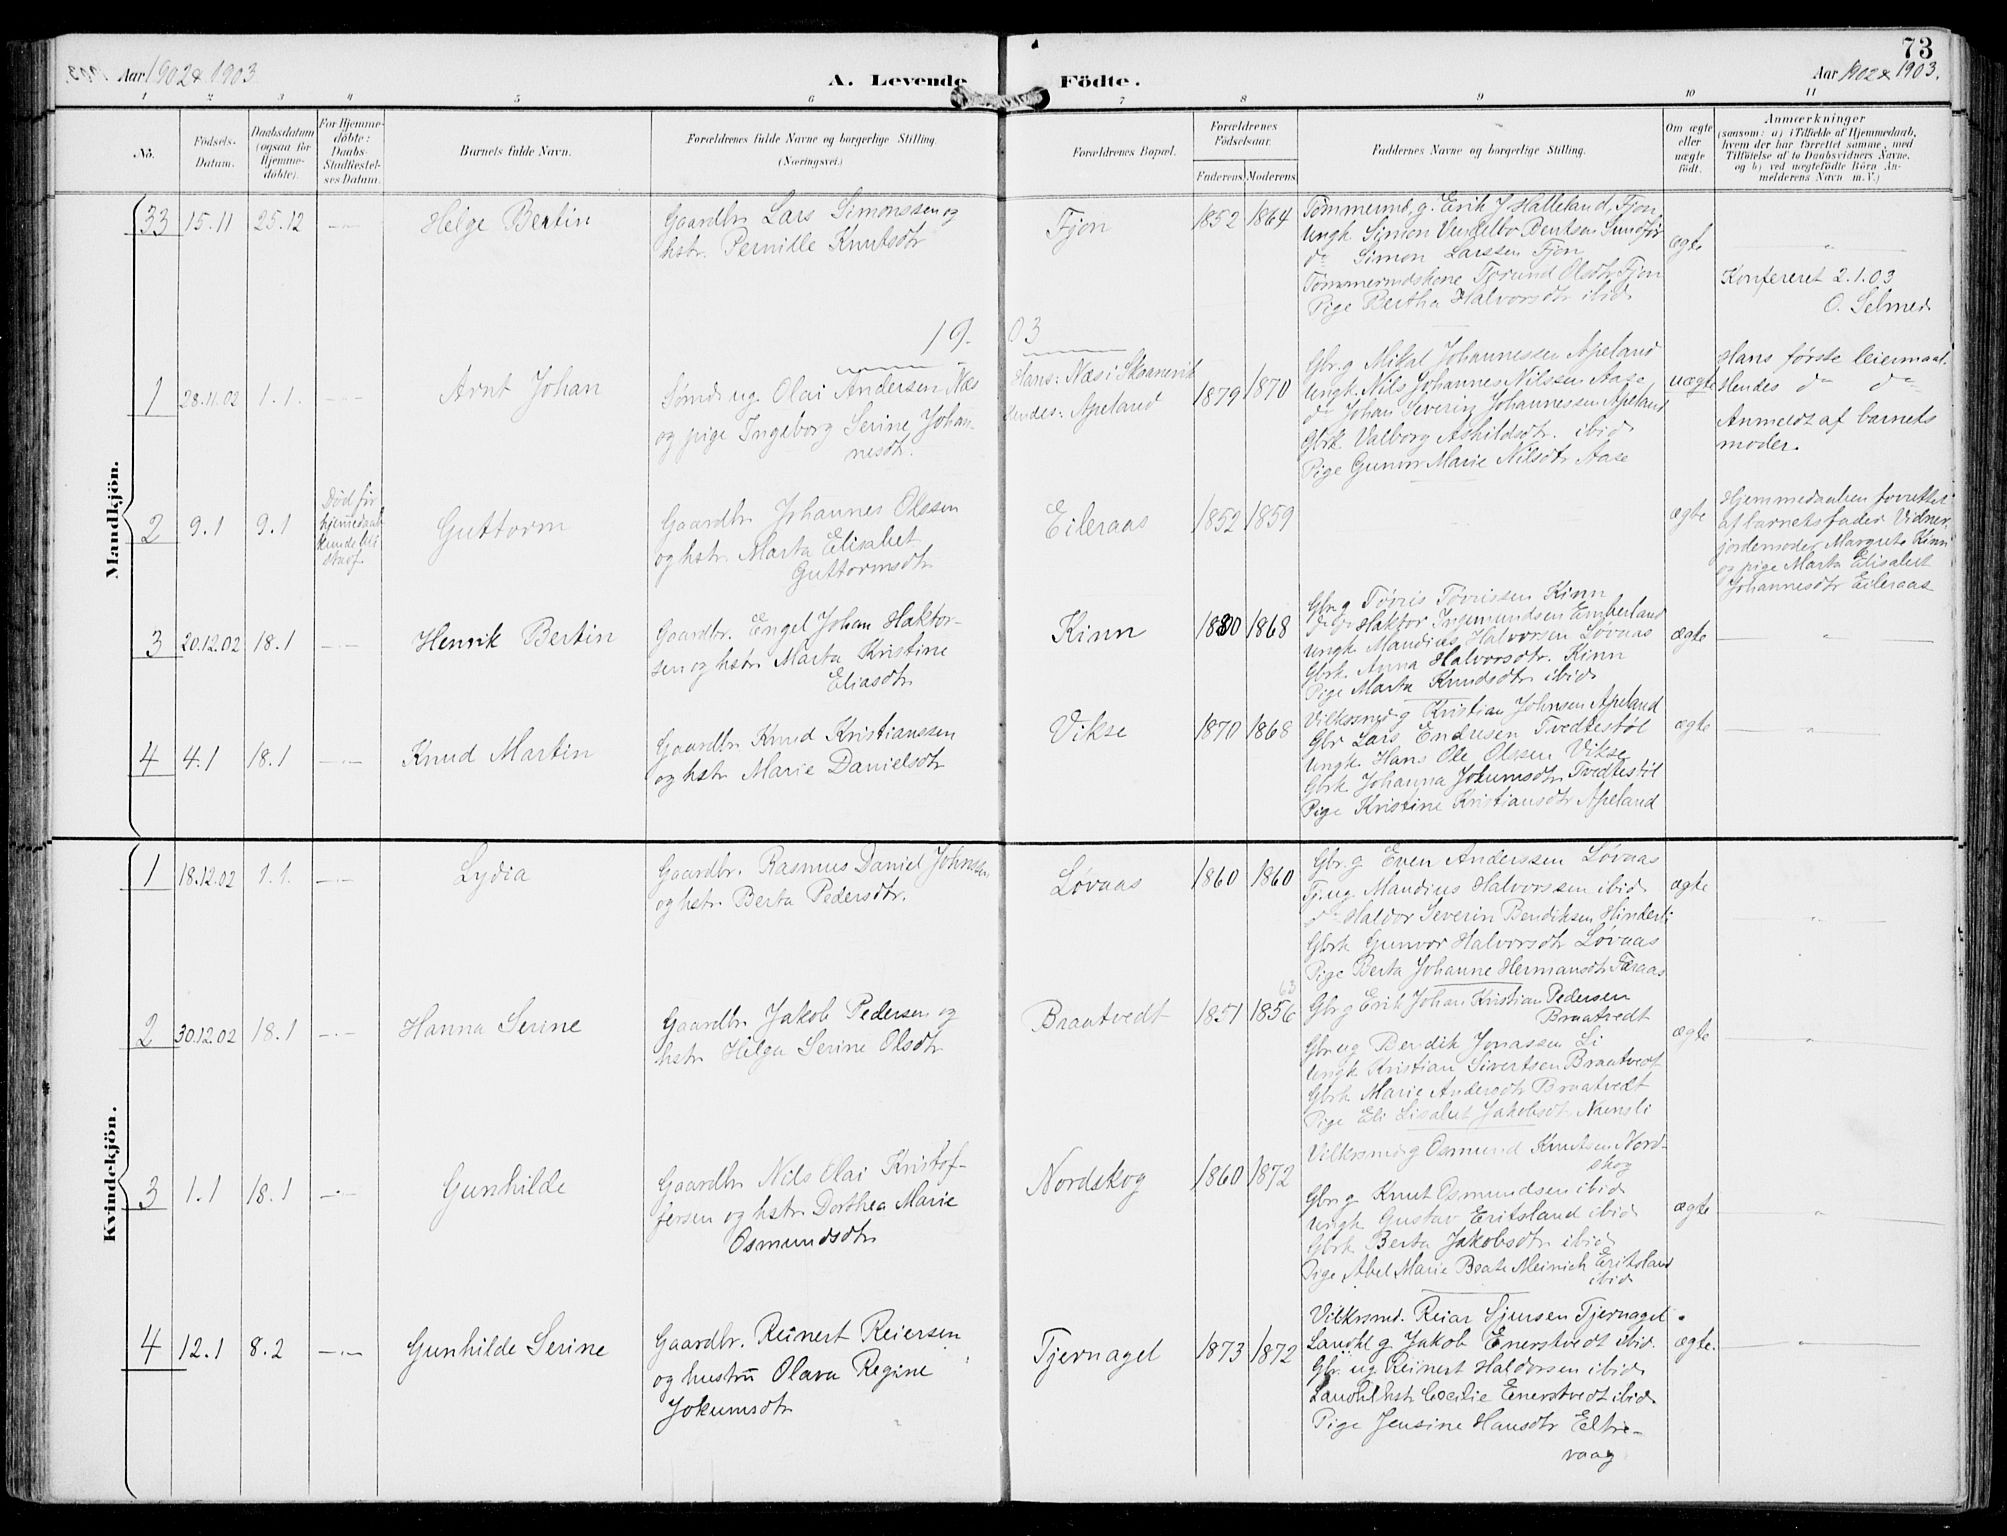 73
Aar 1902 & 1903
A. Levende Födte.
Aar 1902 & 1903.
1 2 3 4 5 6 7 8 9 10 11
No.
Födsels-
Datum.
Daabsdatum
(ogsaa for
Hjemme-
döbte).
For Hjemme-
döbte:
Daabs-
Stadfæstel-
ses Datum.
Barnets fulde Navn.
Forældrenes fulde Navne og borgerlige Stilling.
(Næringsvei.)
Forældrenes Bopæl.
Forældrenes
Födselsaar.
Faderens. Moderens.
Faddernes Navne og borgerlige Stilling.
Om ægte
eller
uægte
födt.
Anmærkninger
(saasom: a) i Tilfælde af Hjemmedaab,
hvem der har forrettet samme, med
Tilföielse af to Daabsvidners Navne,
og b) ved uægtefödte Börn An-
melderens Navn m. V.)
Mandkjön.
33 15.11 25.12 Helge Bertin
Gaardbr Lars Simonssen og
hstr. Pernille Knutsdtr
Fjon 1852 1864
Tømmermd, g. Erik J Halleland, Fjon
Ungk. Simon Vendelbo Bentsen Sundfør
do Simon Larssen Fjon
Tømmermdskone Torund Olsdtr Fjon
Pige Bertha Halvorsdtr ibid
ægte
Konfereret 2.1.03
O. Selmer
1903
1 28.11.02 1.1. Arnt Johan
Sømd ug. Olai Andersen Næs
og pige Ingeborg Serine Johan-
nesdtr.
Hans: Næs i Skaanevik
Hendes: Apeland
1879 1870
Gbr. g Mikal Johannessen Apeland
Ungk. Nils Johannes Nilssen Aase
do Johan Severin Johannessen Apeland
Gbrk Valborg Askildsdtr. ibid
Pige Gunvor Marie Nilsdtr Aase
uægte
Hans første leiermaal.
Hendes do do
Anmeldt af barnets
moder.
2 9.1 9.1
Død før
hjemmedaab
kunde bli
stadf.
Guttorm
Gaardbr Johannes Olssen
og hstr. Marta Elisabet
Guttormsdtr
Eileraas 1852 1859 ægte
Hjemmedaaben forrettet
af barnets fader Vidner
jordemoder Margrete Kinn
og pige Marta Elisabet
Johannesdtr Eileraas
3 20.12.02 18.1 Henrik Bertin
Gaardbr. Engel Johan Haktor-
sen og hstr Marta Kristine
Eliasdtr
Kinn 1880 1868
Gbr. g Tørris Tørrissen Kinn
do do Haktor Ingemundsen Emberland
Ungk Mandius Halvorsen Løvaas
Gbrk Anna Halvorsdtr. Kinn
Pige Marta Knudsdtr ibid
ægte
4 4.1 18.1 Knud Martin
Gaardbr Knud Kristianssen
og hstr Marie Danielsdtr
Vikse 1870 1868
Vilkrsmd g Kristian Johnsen Apeland
Gbr Lars Endresen Tvedtestøl
Ungk Hans Ole Olssen Vikse
Gbrk Johanna Jokumsdtr Tvedtestøl
Pige Kristine Kristiansdtr Apeland
ægte
Kvindekjön.
1 18.12.02 1.1. Lydia
Gaardbr. Rasmus Daniel Johnssen
og hstr Berta Pedersdtr.
Løvaas 1860 1860
Gbr. g Even Anderssen Løvaas
Tj. ug Mandius Halvorssen ibid
do Haldor Severin Bendiksen Hinderli
Gbrk Gunvor Halvorsdtr Løvaas
Pige Berta Johanne Hermansdtr Færaas
ægte
2 30.12.02 18.1 Hanna Serine
Gaardbr Jakob Pedersen og
hstr Helga Serine Olsdtr
Braatvedt 1851 1856 63
Gbr g Erik Johan Kristian Pedersen
Braatvedt
Gbr ug Bendik Jonassen Li
Ungk Kristian Sivertsen Braatvedt
Gbrk Marie Andersdtr Braatvedt
Pige Eli Lisabet Jakobsdtr Nunsli
ægte
3 1.1 18.1 Gunhilde
Gaardbr Nils Olai Kristof-
fersen og hstr Dorthea Marie
Osmundsdtr
Nordskog 1860 1872
Vilkrsmd g Osmund Knutsen Nord-
skog
Gbr. g Knut Osmundsen ibid
Ungk Gustav Eritsland ibid
Gbrk Berta Jakobsdtr ibid
Pige Abel Marie Beate Meinich Eritsland
ibid
ægte
4 12.1 8.2 Gunhilde Serine
Gaardbr. Reinert Reiersen
og hustru Olava Regine
Jokumsdtr
Tjernagel 1873 1872
Vilkrsmd. Reiar Sjursen Tjernagel.
Landhl g Jakob Enerstvedt ibid.
Gbr. ug Reinert Haldorsen ibid
Landhl hst Cecilie Enerstvedt ibid
Pige Jensine Hansdtr Eltre-
vaag
ægte.